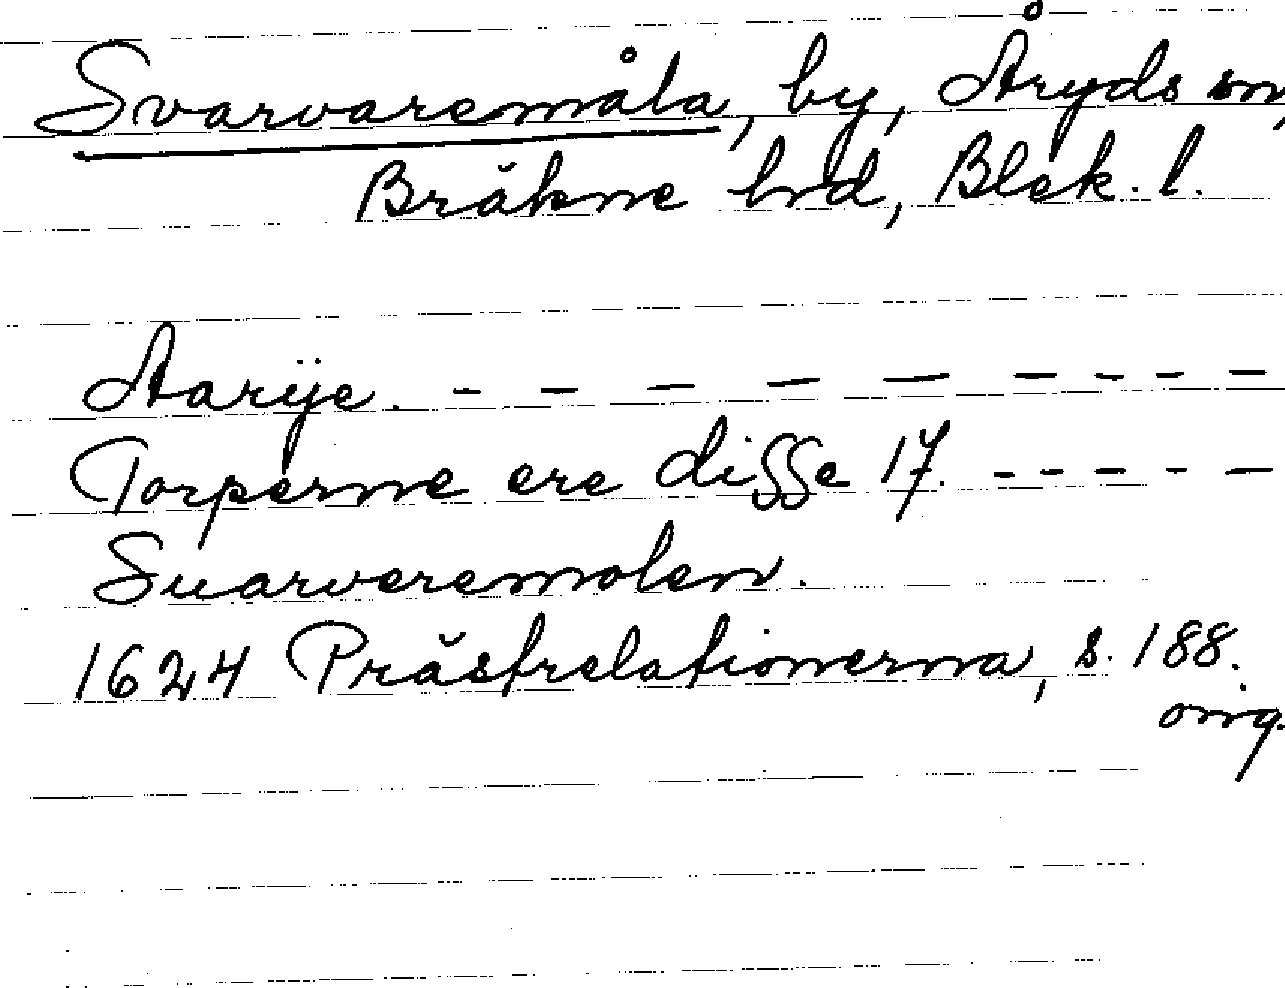 Svarvaremåla, by, Åryds sn,
Bräkne hrd, Blek. l.
Aarÿe. - - - - - - - - -
Torperne ere disse 17. - - - - -
Suarveremolen.
1624 Prästrelationerna, s. 188.
orig.